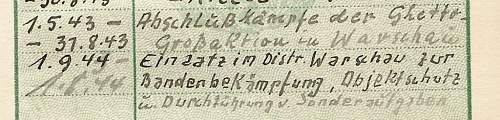 1.5.43 – Abschlußkämpfe der Ghetto-
– 31.8.43 Großaktion in Warschau
1.9.44 – Einsatz im Distr. Warschau zur
Bandenbekämpfung, Objektschutz
u. Durchführung v. Sonderaufgaben